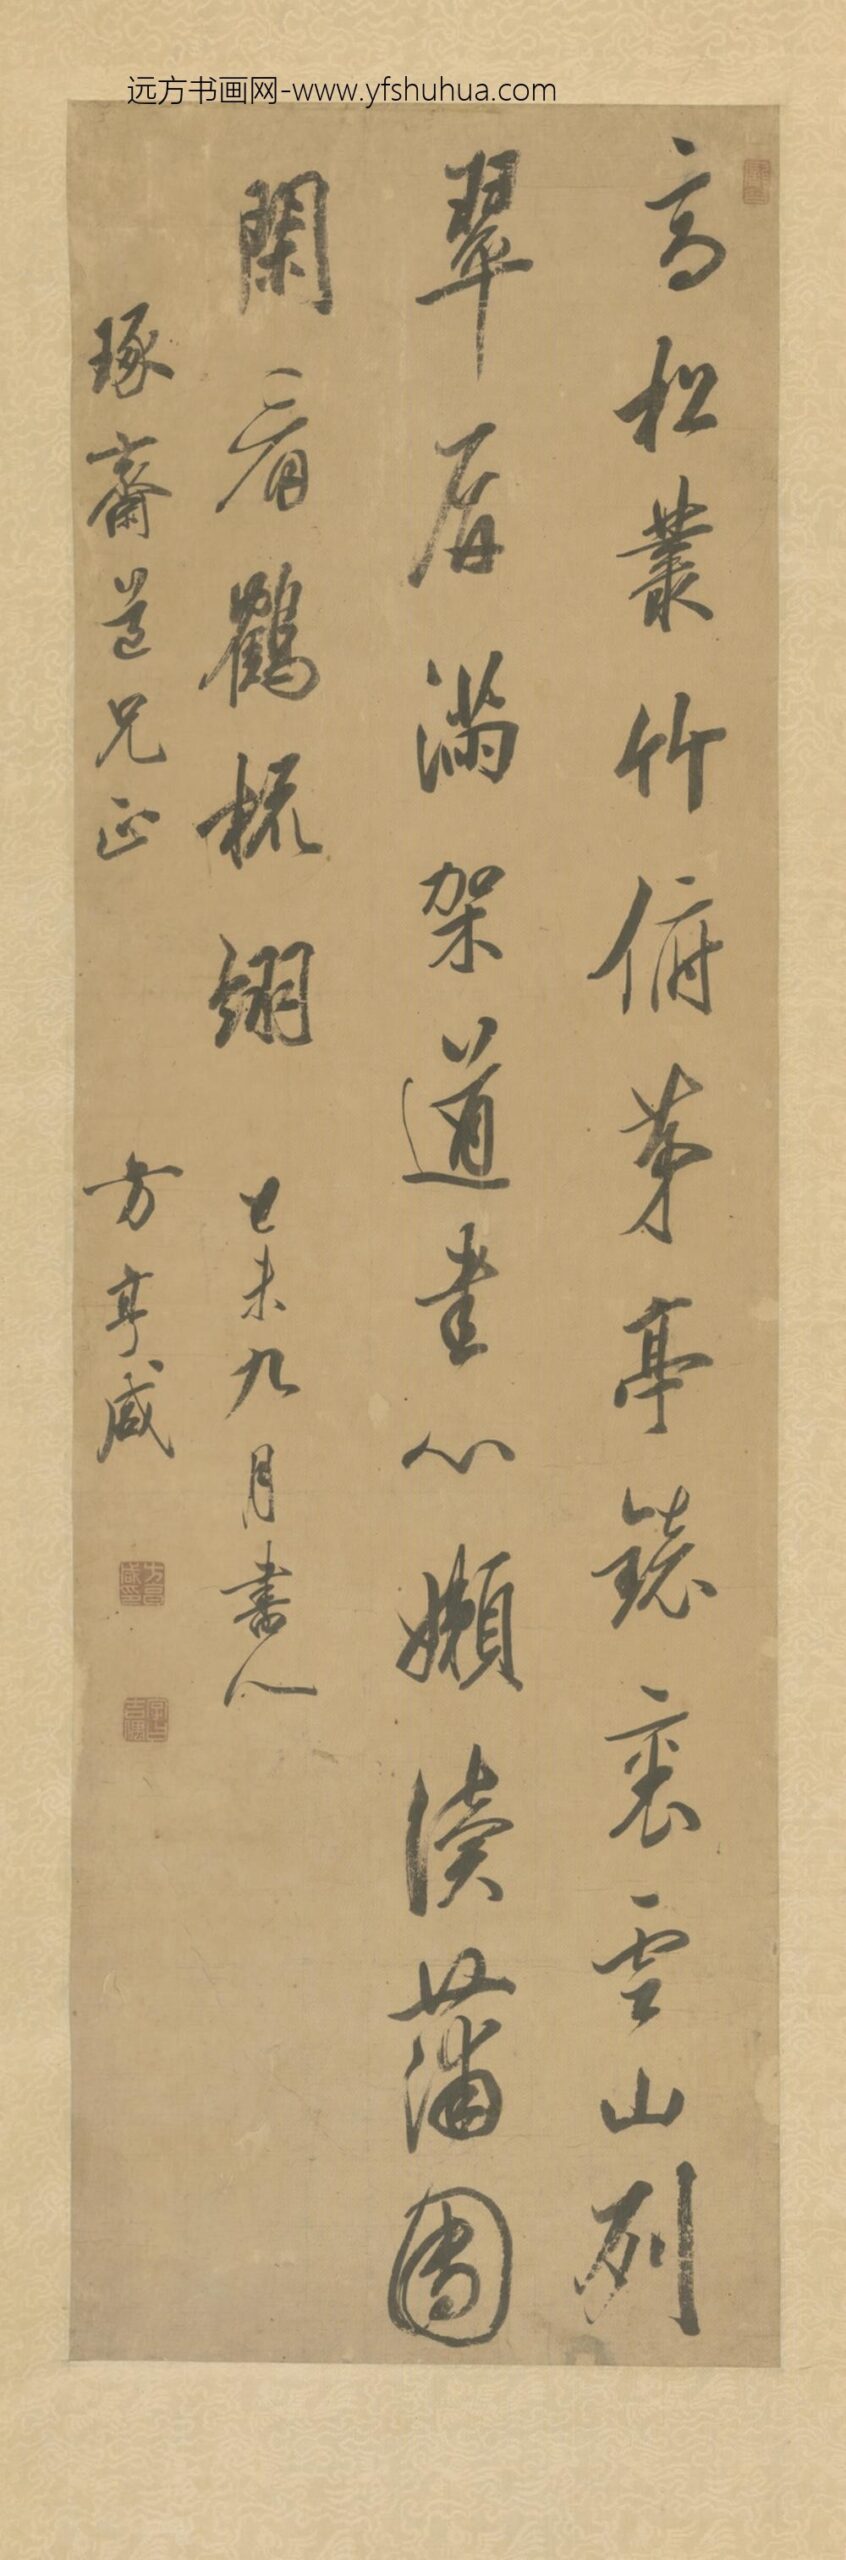 远方书画网-www.yfshuhua.com
高松叢竹俯茅亭鏡裏雲山列
翠屏滿架道書心嬾讀蒲團
閑看鶴梳翎 己未九月書
琢齋道兄正 方亨咸